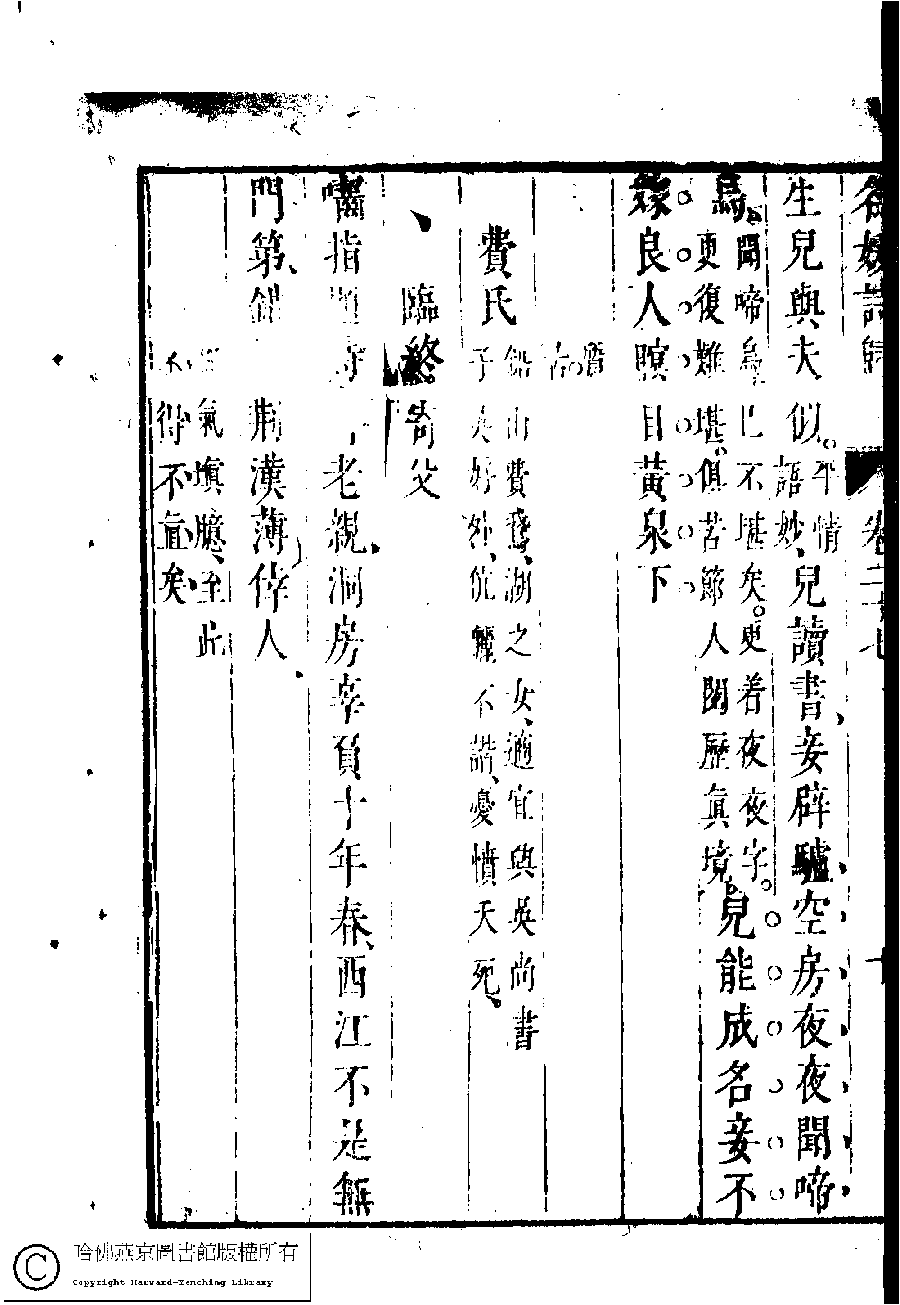 名媛詩歸 卷二十七
生兒與夫似。平情語妙、兒讀書、妾辟驢空房夜夜聞啼
烏、聞啼烏已不堪矣。更着夜夜字。更復難堪。俱苦節人閱歷真境。兒能成名妾不
嫁良人瞑目黃泉下
費氏
鉛山費 湖之女、適宜興吳尚書子夫好外、伉儷不諧、憂憤夭死、
臨終寄父
嚙指題 老親、洞房辜負十年春、西江不是無
門第、錯 荊漢薄倖人、
氣填臆、至此不得不直矣
哈佛燕京圖書館版權所有
Copyright Harvard-Yenching Library